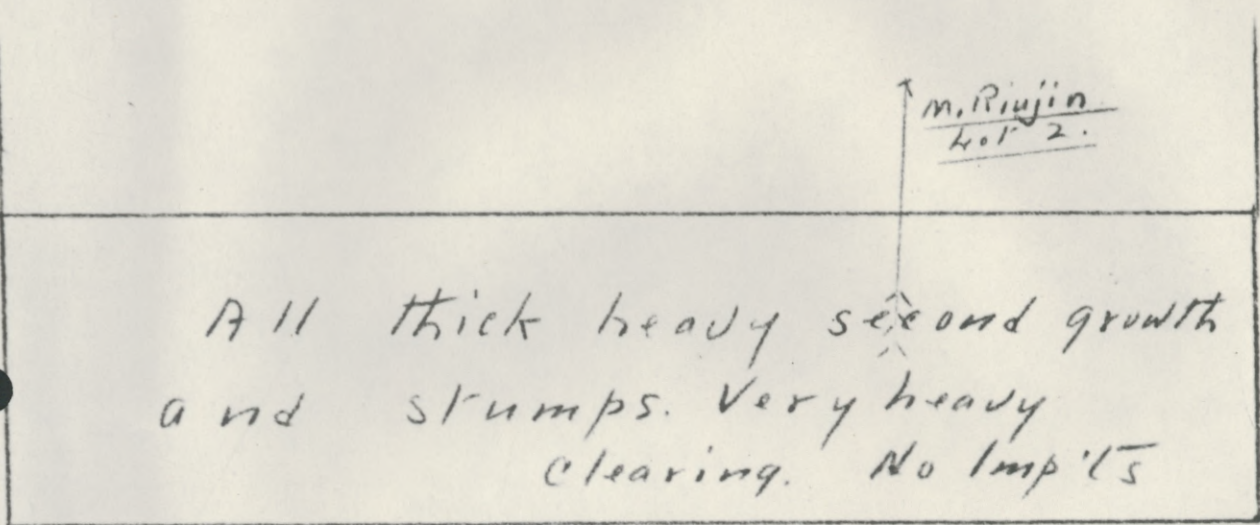 M. Riujin
Lot 2.
All thick heavy second growth
and stumps. Very heavy
clearing. No Imp'ts